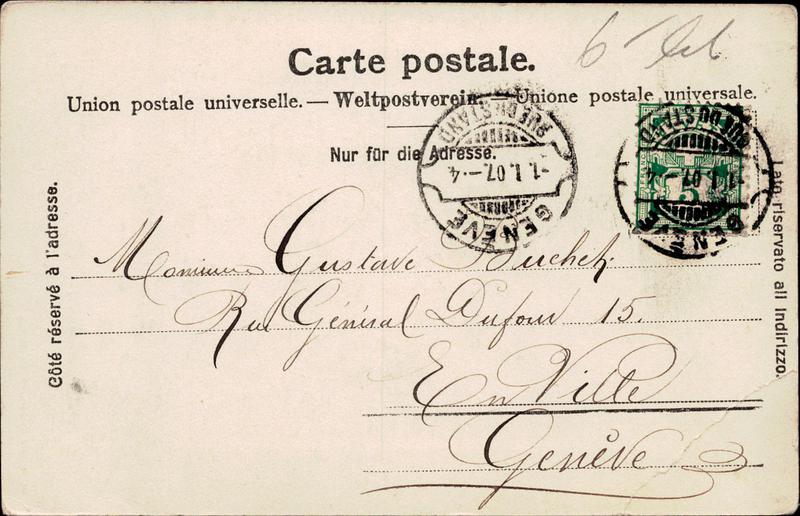 Carte postale.
Union postale universelle. — Weltpostverein. — Unione postale universale.
Nur für die Adresse.
RUE DU STAND
-1.1.07.-4
GENÈVE
RUE DU STAND
-1.1.07.-4
GENÈVE
5
Côté réservé à l'adresse.
Lato riservato all indirizzo.
Monsieur Gustave
Rue Général Dufour 15.
En Ville
Genève